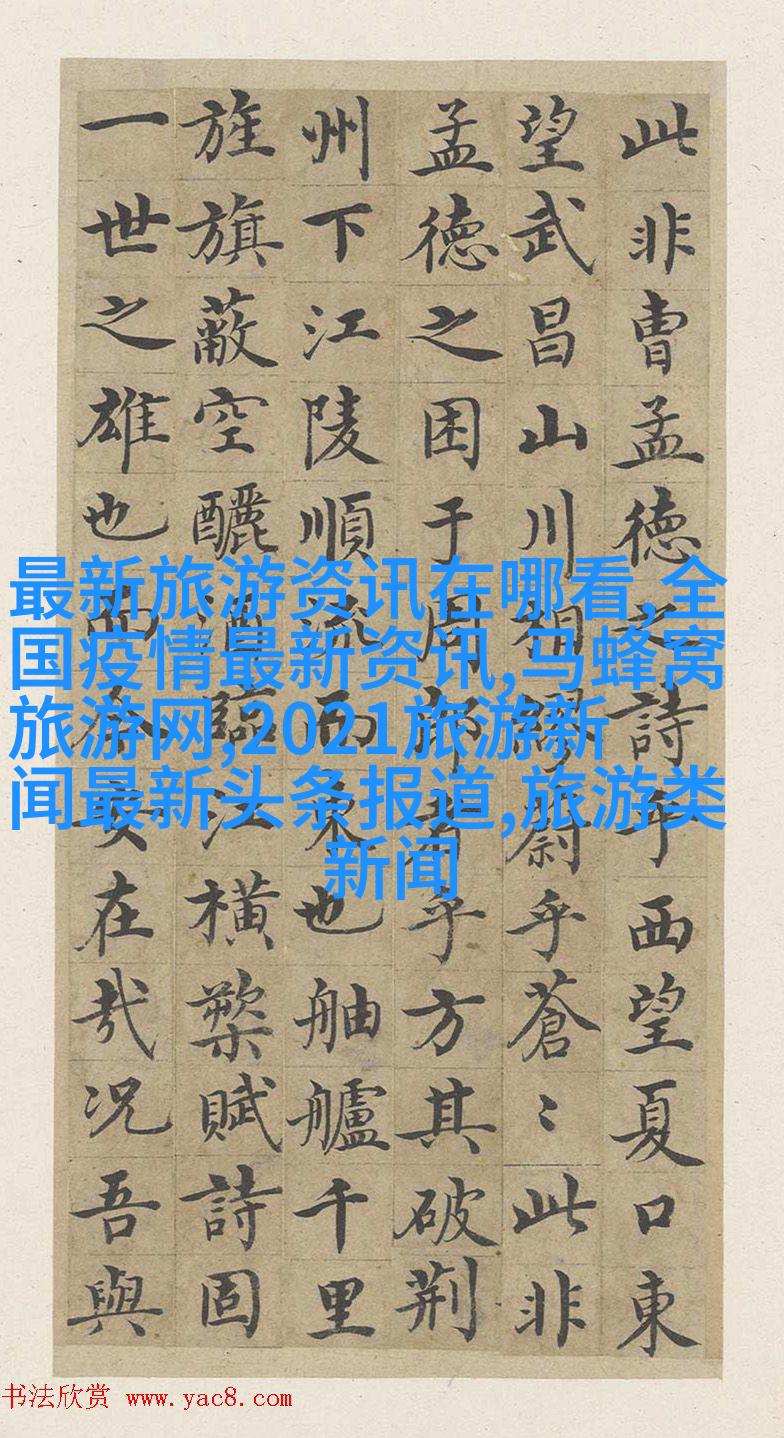 此非曹孟德之詩乎西望夏口東
望武昌山川相繆蔚乎蒼〻此非
孟德之困于周郎者乎方其破荆
州下江陵順流而東也舳艫千里
旌旗蔽空釃酒臨江橫槊賦詩固
一世之雄也而今安在哉况吾與
最新旅游资讯在哪看,全
国疫情最新资讯,马蜂窝
旅游网,2021旅游新
闻最新头条报道,旅游类
新闻
书法欣赏 www.yac8.com